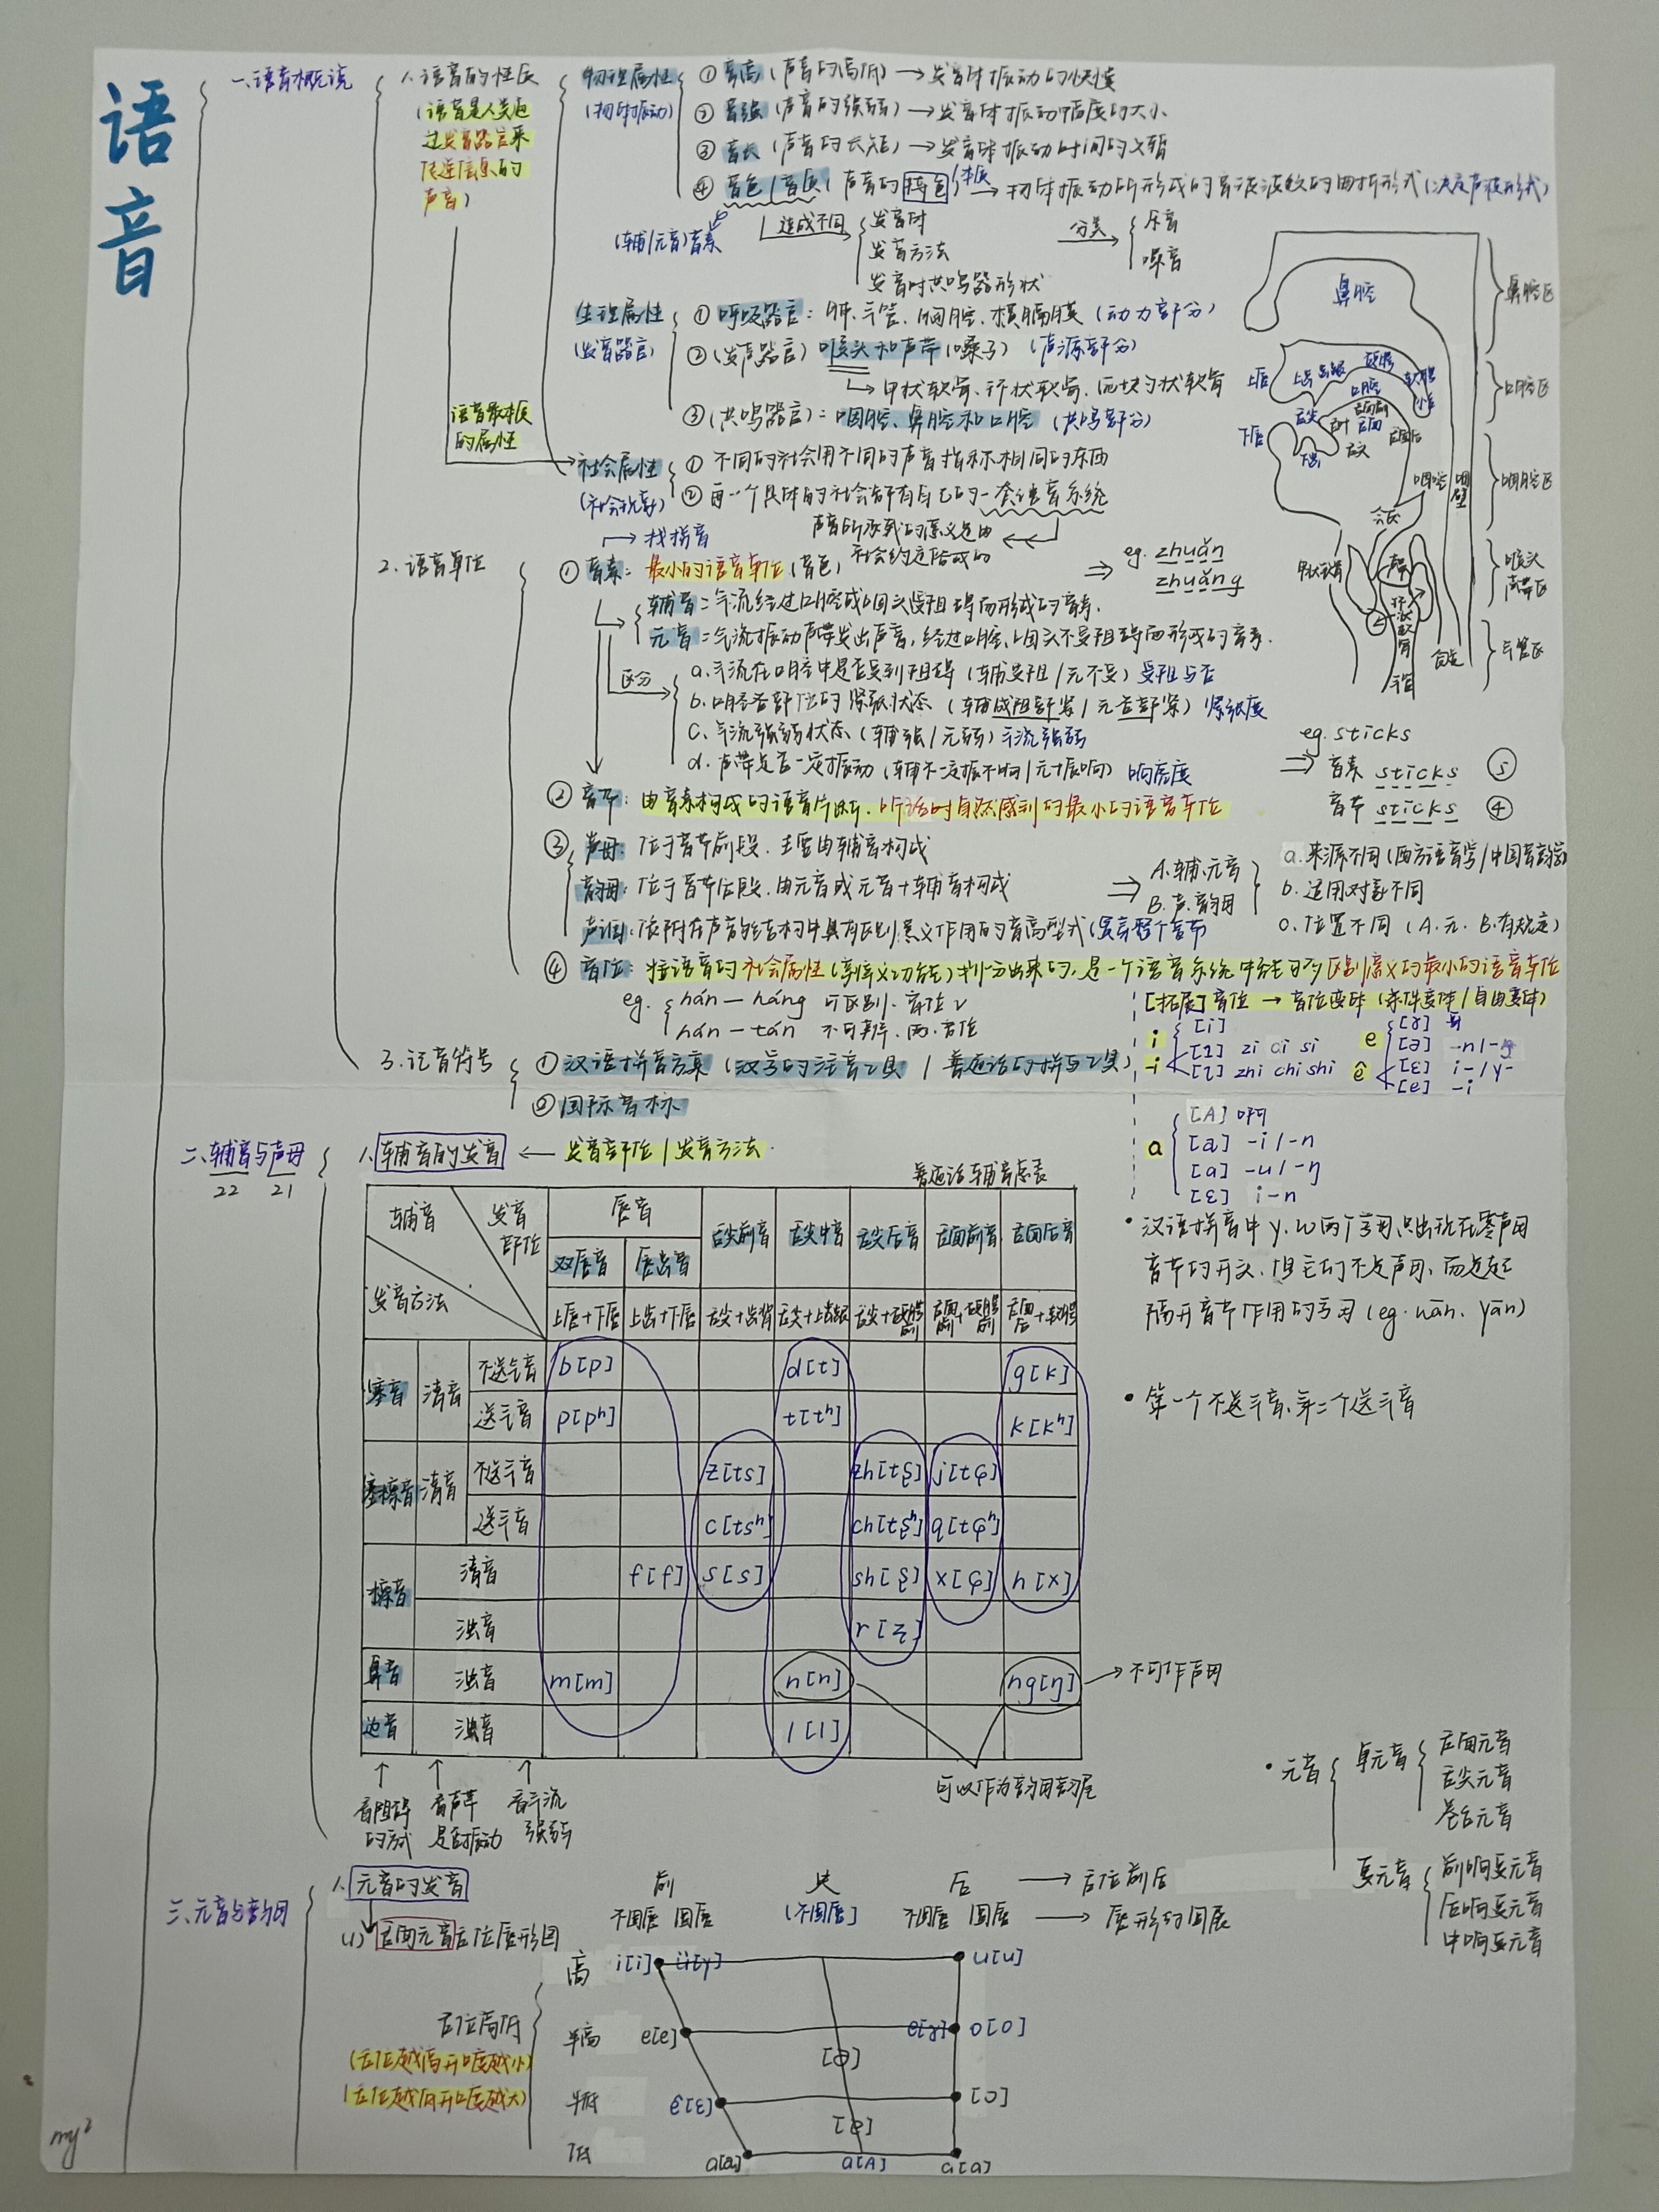 语音
一.语音概说
1.语音的性质
(语音是人类通
过发音器官来
传递信息的
声音)
语音最本质
的属性
物理属性
(物体振动)
①音高(声音的高低)→发音体振动的快慢
②音强(声音的强弱)→发音体振动幅度的大小
③音长(声音的长短)→发音体振动时间的久暂
④音色/音质(声音的特色/本质→物体振动所形成的音波波纹的曲折形式(决定声波形式)
(辅/元音)音素
造成不同
发音体
发音方法
发音时共鸣器形状
分类
乐音
噪音
生理属性
(发音器官)
①呼吸器官:肺、气管、胸腔、横膈膜(动力部分)
②(发声器官)喉头和声带(嗓子)(声源部分)
→甲状软骨、环状软骨、两块勺状软骨
③(共鸣器官):咽腔、鼻腔和口腔(共鸣部分)
社会属性
(社会现象)
①不同的社会用不同的声音指称相同的东西
②每一个具体的社会都有自己的一套语音系统
声音所承载的意义是由
社会约定俗成的
鼻腔
上唇
上齿
齿龈
硬腭
软腭
小舌
口腔
舌尖
舌叶
舌面前
舌面
舌面后
舌根
下唇
下齿
咽腔
咽壁
会厌
甲状软骨
声带
环状软骨
食道
气管
鼻腔区
口腔区
咽腔区
喉头
声带区
气管区
2.语音单位
→找拼音
①音素:最小的语音单位(音色)
⇒ eg. zhuān
zhuāng
辅音:气流经过口腔或咽头受阻碍而形成的音素.
元音:气流振动声带发出声音,经过口腔、咽头不受阻碍而形成的音素.
区分
a.气流在口腔中是否受到阻碍(辅受阻/元不受)受阻与否
b.口腔各部位的紧张状态(辅成阻部紧/元各部紧)紧张度
c.气流强弱状态(辅强/元弱)气流强弱
d.声带是否一定振动(辅不一定振不响/元+振响)响亮度
eg. sticks
⇒ 音素 sticks ⑤
音节 sticks ④
②音节:由音素构成的语音片断.听话时自然感到的最小的语音单位
③声母:位于音节前段.主要由辅音构成
韵母:位于音节后段.由元音或元音+辅音构成
声调:依附在声韵结构中具有区别意义作用的音高型式(贯穿整个音节
⇒ A.辅、元音
B.声、韵母
a.来源不同(西方语音学/中国音韵学)
b.适用对象不同
c.位置不同(A.无.B.有规定)
④音位:按语音的社会属性(辨义功能)划分出来的,是一个语音系统中能够区别意义的最小的语音单位
eg. hán — háng 可区别.音位√
hán — tán 不可算.两.音位
[拓展]音位→音位变体(条件变体/自由变体)
i [i]
-i [ɿ] zi ci si
[ʅ] zhi chi shi
e [ɤ]
[ə] -n/-ŋ
ê [ɛ] i-/y-
[e] -i
a [A] 啊
[a] -i/-n
[ɑ] -u/-ŋ
[ɛ] i-n
3.记音符号
①汉语拼音方案(汉字的注音工具/普通话的拼写工具)
②国际音标
二.辅音与声母
22 21
1.辅音的发音 ← 发音部位/发音方法.
普通话辅音总表
辅音 发音部位 发音方法
唇音 舌尖前音 舌尖中音 舌尖后音 舌面前音 舌面后音
双唇音 唇齿音
上唇+下唇 上齿+下唇 舌尖+齿背 舌尖+上齿龈 舌尖+硬腭前 舌面前+硬腭前 舌面后+软腭
塞音 清音 不送气音 b[p] d[t] g[k]
送气音 p[pʰ] t[tʰ] k[kʰ]
塞擦音 清音 不送气音 z[ts] zh[tʂ] j[tɕ]
送气音 c[tsʰ] ch[tʂʰ] q[tɕʰ]
擦音 清音 f[f] s[s] sh[ʂ] x[ɕ] h[x]
浊音 r[ʐ]
鼻音 浊音 m[m] n[n] ng[ŋ] →不可作声母
边音 浊音 l[l]
↑ ↑ ↑
看阻碍
的方式
看声带
是否振动
看气流
强弱
可以作为韵母韵尾
•汉语拼音中y、w两个字母只出现在零声母
音节的开头.但它们不是声母,而是起
隔开音节作用的字母(eg. wān、yān)
•第一个不送气音、第二个送气音
•元音
单元音
舌面元音
舌尖元音
卷舌元音
复元音
前响复元音
后响复元音
中响复元音
三.元音与韵母
1.元音的发音
(1)舌面元音舌位唇形图
前 央 后 →舌位前后
不圆唇 圆唇 (不圆唇) 不圆唇 圆唇 →唇形的圆展
舌位高低
(舌位越高开口度越小)
(舌位越低开口度越大)
高 i[i] ü[y] u[u]
半高 e[e] e[ɤ] o[o]
[ə]
半低 ê[ɛ] [ɔ]
[ɐ]
低 a[a] a[A] a[ɑ]
my²